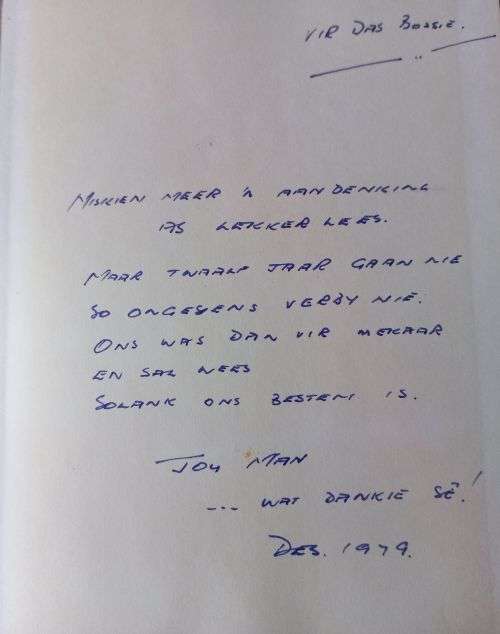 VIR DAS BOSSIE.
MISKIEN MEER 'N AANDENKING
AS LEKKER LEES.
MAAR TWAALF JAAR GAAN NIE
SO ONGESIENS VERBY NIE.
ONS WAS DAN VIR MEKAAR
EN SAL WEES
SOLANK ONS BESTEM IS.
JOU MAN
... WAT DANKIE SÊ!
DES. 1979.